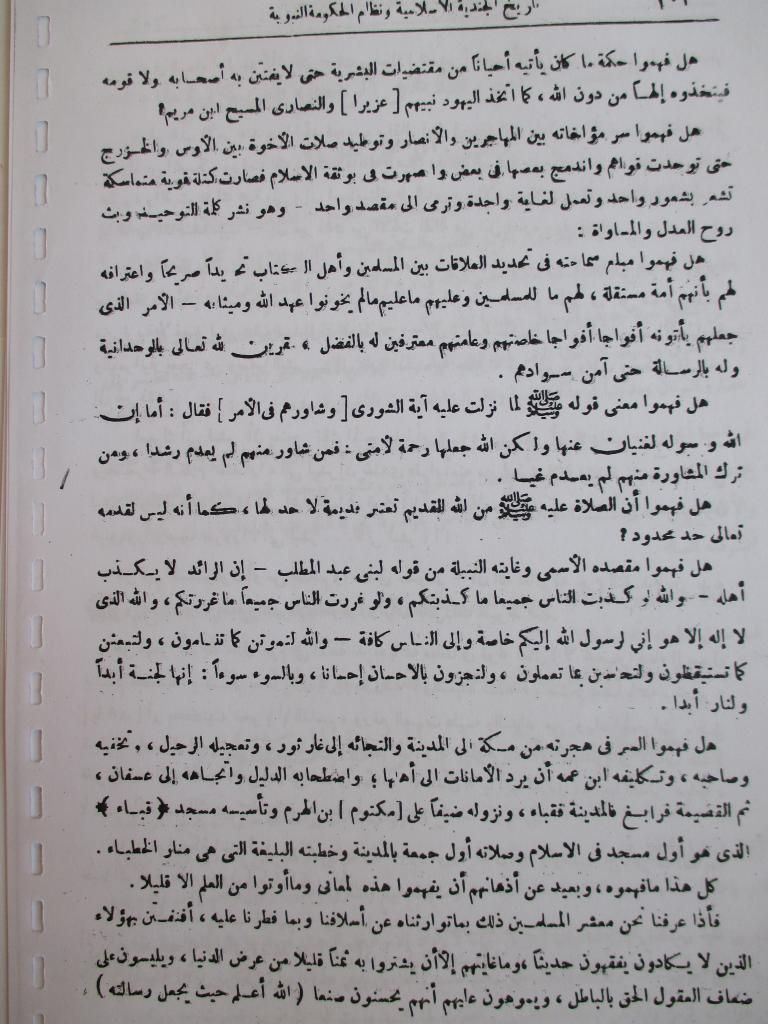 تاريخ الجندية الاسلامية ونظام الحكومة النبوية
هل فهموا حكمة ما كان يأتيه أحيانا من مقتضيات البشرية حتى لا يفتتن به أصحابه ولا قومه
فيتخذوه إلهاً من دون الله ، كما اتخذ اليهود نبيهم [ عزيرا ] والنصارى المسيح ابن مريم؟
هل فهموا سر مؤاخاته بين المهاجرين والأنصار وتوطيد صلات الأخوة بين الأوس والخزرج
حتى توحدت قواهم واندمج بعضها في بعض وانصهرت فى بوثقة الاسلام فصارت كتلة قوية متماسكة
تشعر بشعور واحد وتعمل لغاية واحدة وترمى الى مقصد واحد - وهو نشر كلمة التوحيد وبث
روح العدل والمساواة :
هل فهموا مبلغ سماحته فى تحديد العلاقات بين المسلمين وأهل الكتاب تحديداً صريحاً واعترافه
لهم بأنهم أمة مستقلة ، لهم ما للمسلمين وعليهم ماعليهم مالم يخونوا عهد الله وميثاقه – الأمر الذى
جعلهم يأتونه أفواجا أفواجا خاصتهم وعامتهم معترفين له بالفضل ، مقرين لله تعالى بالوحدانية
وله بالرسالة حتى آمن سوادهم .
هل فهموا معنى قوله ﷺ لما نزلت عليه آية الشورى [ وشاورهم فى الأمر ] فقال : أما إن
الله ورسوله لغنيان عنها ولكن الله جعلها رحمة لأمتى : فمن شاور منهم لم يعدم رشدا ، ومن
ترك المشاورة منهم لم يعدم غيا .
هل فهموا أن الصلاة عليه ﷺ من الله القديم تعتبر قديمة لا حد لها ، كما أنه ليس لقدمه
تعالى حد محدود ؟
هل فهموا مقصده الأسمى وغايته النبيلة من قوله لبنى عبد المطلب – إن الرائد لا يكذب
أهله – والله لو كذبت الناس جميعا ما كذبتكم ، ولو غررت الناس جميعاً ما غررتكم ، والله الذى
لا إله إلا هو إني لرسول الله إليكم خاصة وإلى الناس كافة – والله لتموتن كما تنامون ، ولتبعثن
كما تستيقظون ولتحاسبن بما تعملون ، ولتجزون بالاحسان إحسانا ، وبالسوء سوءاً : إنها لجنة أبداً
ولنار أبدا .
هل فهموا السر فى هجرته من مكة الى المدينة والتجائه إلى غار ثور ، وتعجيله الرحيل ، وتخفيه
وصاحبه ، وتكليفه ابن عمه أن يرد الأمانات الى أهلها ؛ واصطحابه الدليل واتجاهه إلى عسفان ،
ثم القضيمة فرابغ فالمدينة فقباء ، ونزوله ضيفاً على [ مكتوم ] بن الهرم وتأسيسه مسجد ﴿ قباء ﴾
الذى هو أول مسجد فى الاسلام وصلاته أول جمعة بالمدينة وخطبته البليغة التى هى منار الخطباء .
كل هذا مافهموه ، وبعيد عن أذهانهم أن يفهموا هذه المعانى وماأوتوا من العلم الا قليلا .
فأذا عرفنا نحن معشر المسلمين ذلك بماتوارثناه عن أسلافنا وبما فطرنا عليه ، أفنفتتن بهؤلاء
الذين لا يكادون يفقهون حديثاً ، وماغايتهم إلا أن يشتروا به ثمناً قليلا من عرض الدنيا ، ويلبسون على
ضعاف العقول الحق بالباطل ، ويموهون عليهم أنهم يحسنون صنعا ( الله أعلم حيث يجعل رسالته )